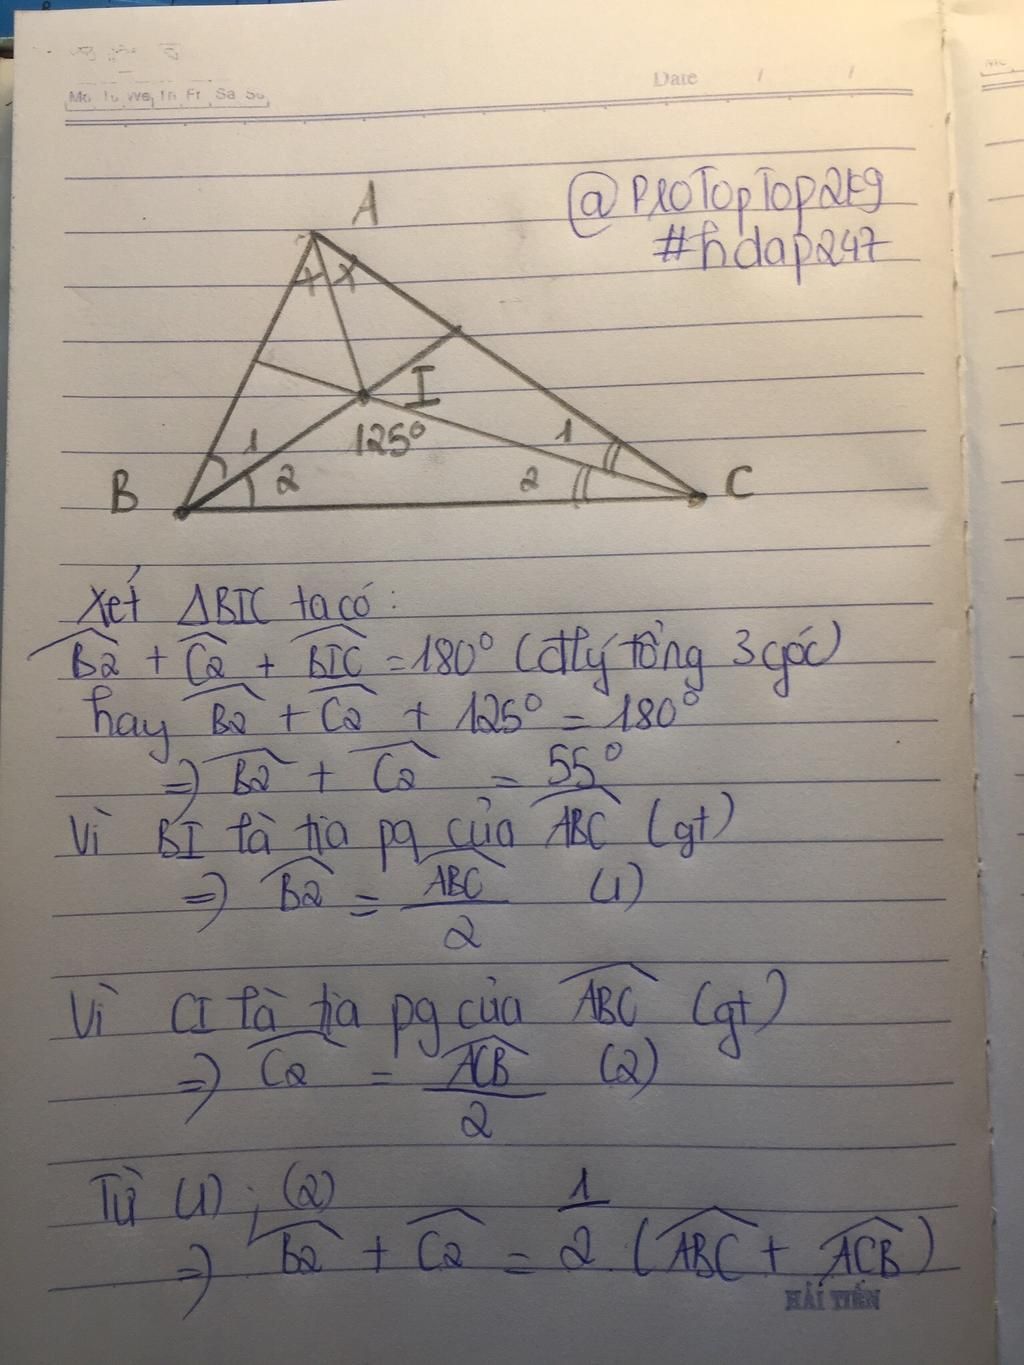 Mo Tu We Th Fr Sa Su
Date / /
@ProTopTop2k9
#hdap247
A
I
125°
1
1
2
2
B
C
Xét ΔBIC ta có:
B2 + C2 + BIC = 180° (đlý tổng 3 góc)
hay B2 + C2 + 125° = 180°
=> B2 + C2 = 55°
Vì BI là tia pg của ABC (gt)
=> B2 = ABC/2 (1)
Vì CI là tia pg của ABC (gt)
=> C2 = ACB/2 (2)
Từ (1); (2)
=> B2 + C2 = 1/2 (ABC + ACB)
HẢI TIẾN